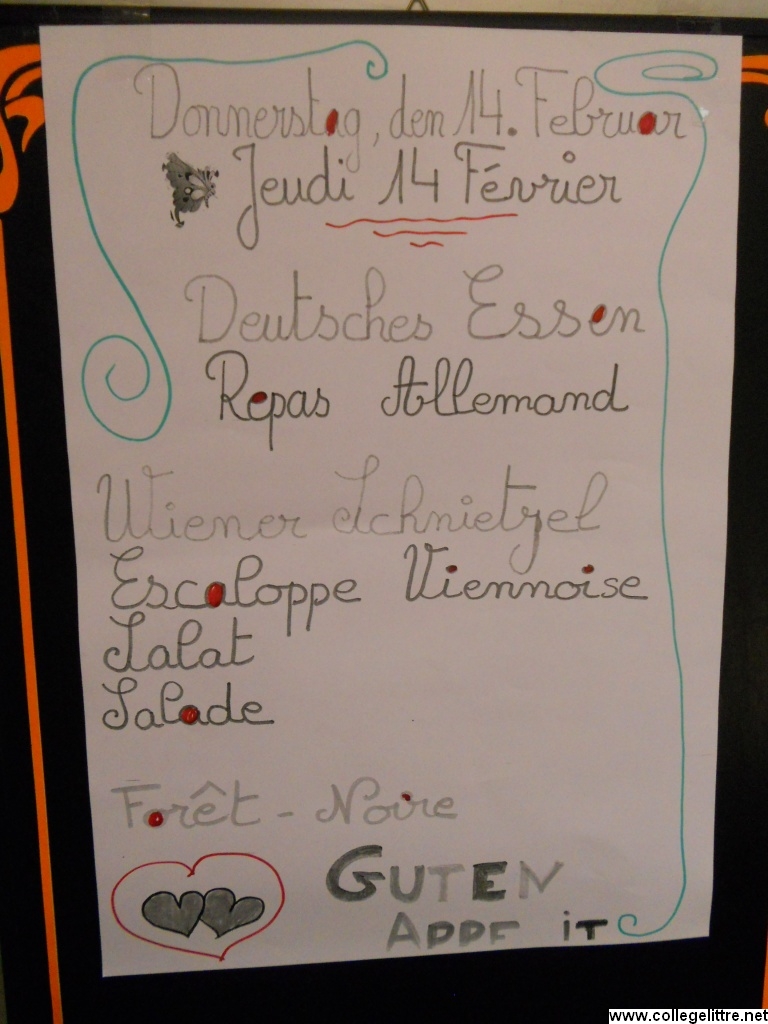 Donnerstag, den 14. Februar
Jeudi 14 Février
Deutsches Essen
Repas Allemand
Wiener Schnietzel
Escaloppe Viennoise
Salat
Salade
Forêt - Noire
GUTEN
APPE iT
www.collegelittre.net